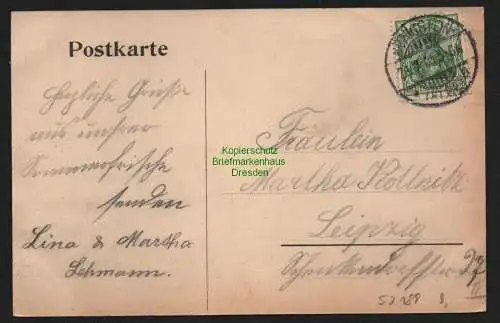 Postkarte
Herzliche Grüße
aus unsrer
Sommerfrische
senden
Lina & Martha
Lehmann.
Fräulein
Martha Kollnitz
Leipzig
Schenkendorfstr. 27
Kopierschutz
Briefmarkenhaus
Dresden